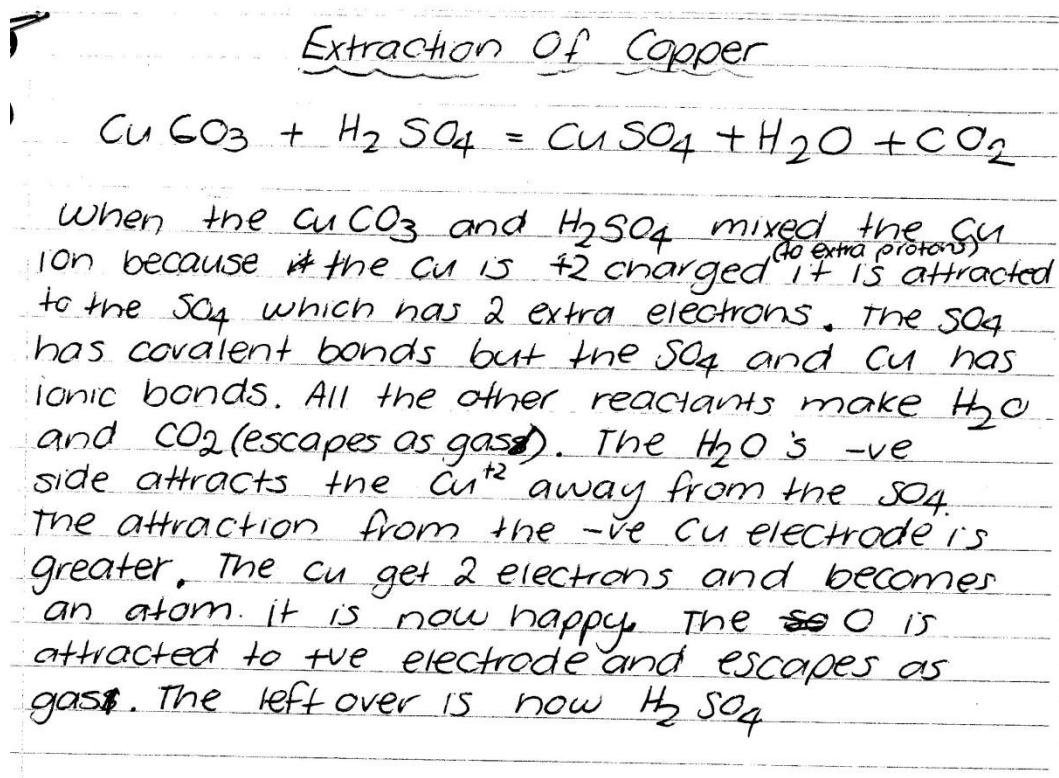 Extraction Of Copper
CuCO3 + H2SO4 = CuSO4 + H2O + CO2
When the CuCO3 and H2SO4 mixed the Cu
(to extra protons)
ion because the Cu is +2 charged it is attracted
to the SO4 which has 2 extra electrons. The SO4
has covalent bonds but the SO4 and Cu has
ionic bonds. All the other reactants make H2O
and CO2 (escapes as gas). The H2O's -ve
side attracts the Cu+2 away from the SO4.
The attraction from the -ve Cu electrode is
greater. The Cu get 2 electrons and becomes
an atom. it is now happy. The O is
attracted to +ve electrode and escapes as
gas. The left over is now H2SO4